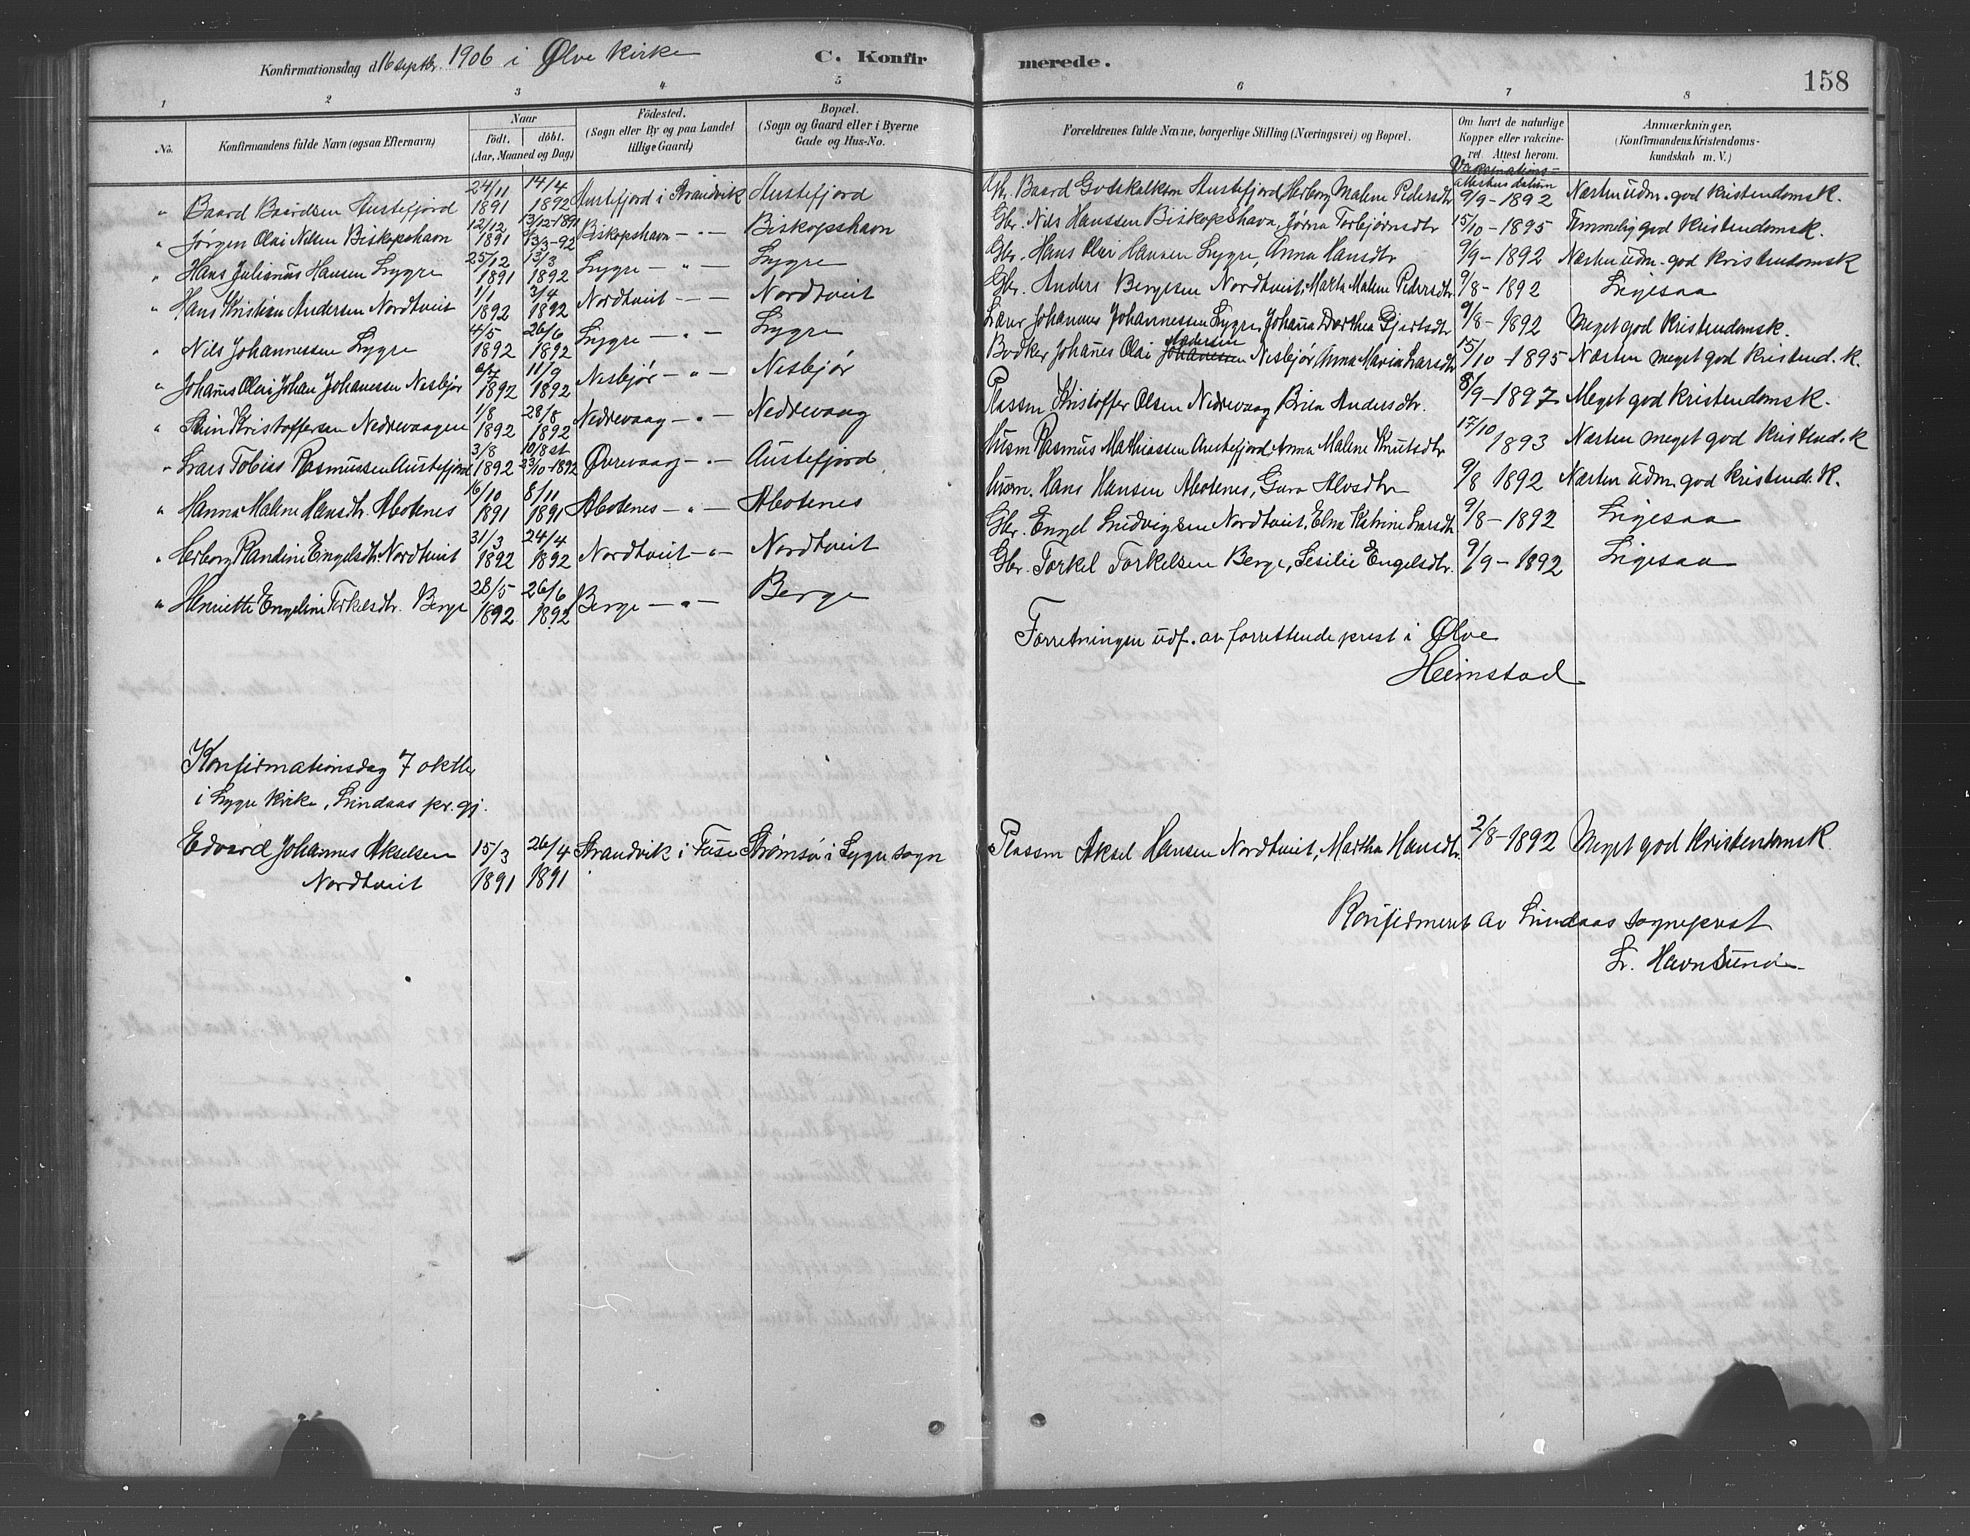 Konfirmationsdag d. 16 septbr. 1906 i Ølve Kirke C. Konfirmerede. 158
1 2 3 4 5 6 7 8
No. Konfirmandens fulde Navn (ogsaa Efternavn) Naar født. døbt. (Aar, Maaned og Dag) Fødested. (Sogn eller By og paa Landet tillige Gaard.) Bopæl. (Sogn og Gaard eller i Byerne Gade og Hus-No. Forældrenes fulde Navne, borgerlige Stilling (Næringsvei) og Bopæl. Om havt de naturlige Kopper eller vakcineret. Attest herom. Anmærkninger. (Konfirmandens Kristendomskundskab m. V.)
Vaksinations-attestens datum
" Baard Baardsen Austefjord 24/11 1891 14/4 1892 Austefjord i Strandvik Austefjord Gbr. Baard Godskalksen Austefjord, Herborg Malene Pedersdtr 9/9-1892 Næsten udm. god Kristendomsk.
" Jørgen Olai Nilsen Biskopshavn 12/12 1891 13/12-1891 13/3-92 Biskopshavn - " - Biskopshavn Gbr. Nils Hanssen Biskopshavn, Jørna Torbjørnsdtr 15/10-1895 Temmelig god Kristendomsk.
" Hans Julianus Hansen Lygre 25/12 1891 13/3 1892 Lygre - " - Lygre Gbr. Hans Olai Hansen Lygre, Anna Hansdtr 9/9-1892 Næsten udm. god Kristendomsk
" Hans Kristian Andersen Nordtveit 1/1 1892 3/4 1892 Nordtveit - - Nordtveit Gbr. Anders Bergesen Nordtveit, Marta Malene Pedersdtr 9/8-1892 Ligesaa
" Nils Johannessen Lygre 4/5 1892 26/6 1892 Lygre - " - Lygre Lærer Johannes Johannessen Lygre, Johanna Dorthea Gjertsdtr 9/8-1892 Meget god Kristendomsk.
" Johans Olai Johan Johanessen Nesbjør 6/7 1892 11/9 1892 Nesbjør - " - Nesbjør Bødker Johanes Olai Johanesen Andersen Nesbjør Anna Maria Larsdtr 15/10-1895 Næsten meget god Kristend.k.
" Stein Kristoffersen Nedrevaagen 1/8 1892 28/8 1892 Nedrevaag - " - Nedrevaag Plassm Kristoffer Olsen Nedrevaag Brita Andersdtr. 8/9-1897 Meget god Kristendomsk.
" Lars Tobias Rasmussen Austefjord 3/8 1892 10/8 st 23/10-1892 Øvrevaag - " - Austefjord Husm Rasmus Mathiassen Austefjord, Anna Malene Knutsdtr 17/10 1893 Næsten meget god Kristend.k
" Hanna Malene Hansdtr. Abotenes 16/10 1891 8/11 1891 Abotenes - " - Abotenes Husm. Hans Hansen Abotenes, Guro Alvsdtr 9/8 1892 Næsten udm. god Kristend.k.
" Herborg Randine Engelsdtr Nordtveit 31/3 1892 24/4 1892 Nordtveit - " - Nordtveit Gbr. Engel Ludvigsen Nordtveit, Elna Katrine Larsdtr 9/8-1892 Ligesaa
" Henriette Engeline Torkelsdtr. Berge 28/5 1892 26/6 1892 Berge - " - Berge Gbr Torkel Torkelsen Berge, Sesilie Engelsdtr. 9/9-1892 Ligesaa
Forretningen udf. av forrettende prest i Ølve
Heimstad
Konfirmationsdag 7 oktbr
i Lygre Kirke, Lindaas pr.gj.
Edvard Johannes Akselsen Nordtveit 15/3 1891 26/4 1891 Strandvik i Fuse Strømsø i Lygre sogn Plassm Aksel Hansen Nordtveit, Martha Hansdtr. 2/8-1892 Meget god Kristendomsk
Konfirmeret av Lindaas sogneprest
L. Havnsund